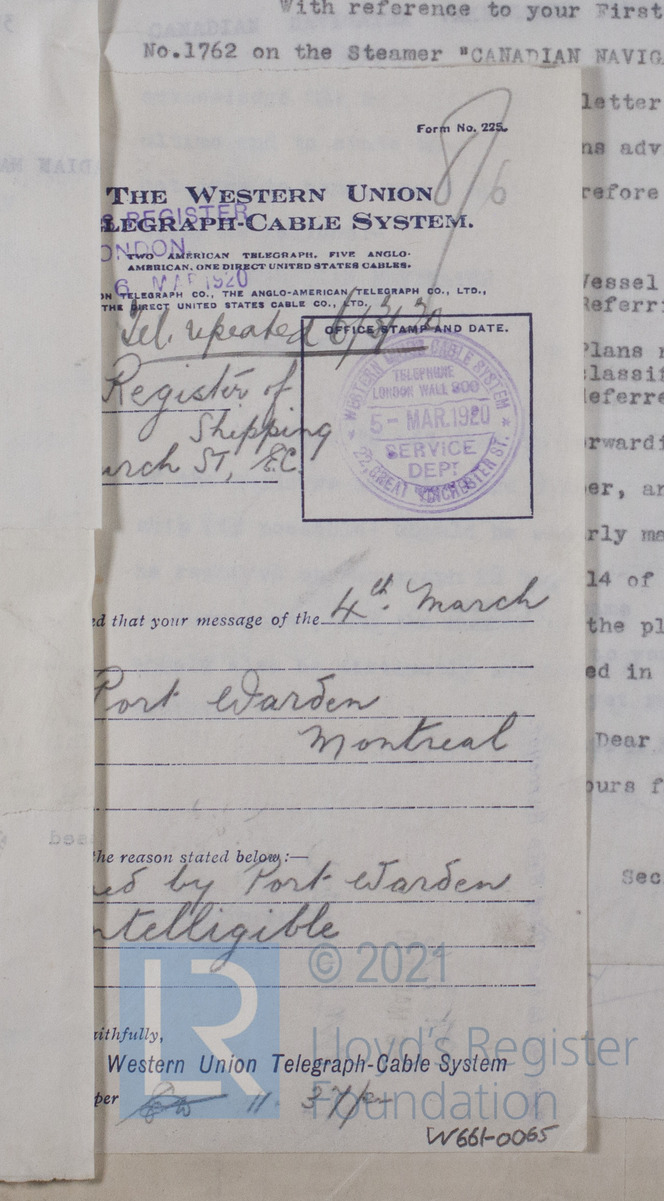 With reference to your First
No.1762 on the Steamer "CANADIAN NAVIG
letter
Form No. 225.
ns adv
8/6
refore
THE WESTERN UNION
LEGRAPH-CABLE SYSTEM.
S REGISTER
ONDON
6 MAR 1920
TWO AMERICAN TELEGRAPH. FIVE ANGLO-
AMERICAN, ONE DIRECT UNITED STATES CABLES.
ON TELEGRAPH CO., THE ANGLO-AMERICAN TELEGRAPH CO., LTD.,
THE DIRECT UNITED STATES CABLE CO., LTD.
Vessel
Referri
Tel. repeated 6/3/20
OFFICE STAMP AND DATE.
WESTERN UNION CABLE SYSTEM
TELEPHONE
LONDON WALL 800
5-MAR.1920
SERVICE
DEPT
22, GREAT WINCHESTER ST.
Plans
classif
deferre
Register of
Shipping
urch ST, E.C.
rwardi
er, an
rly ma
14 of
ed that your message of the 4th. March
the pl
ed in
Port Warden
Montreal
Dear
ours f
he reason stated below:—
ed by Port Warden
ntelligible
Sec
© 2021
LR
Lloyd's Register
Foundation
aithfully,
Western Union Telegraph-Cable System
per
W661-0065